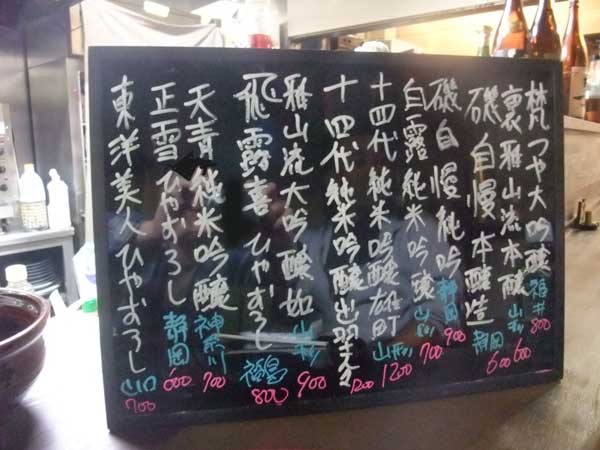 梵つや大吟醸 福井 800
裏雅山流本醸 山形 600
磯自慢本醸造 静岡 600
磯自慢純吟 静岡 900
白露純米吟醸 山形 700
十四代純米吟醸雄町 山形 1200
十四代純米吟醸出羽燦々 1200
雅山流大吟醸如 山形 900
飛露喜ひやおろし 福島 800
天青純米吟醸 神奈川 700
正雪ひやおろし 静岡 600
東洋美人ひやおろし 山口 700